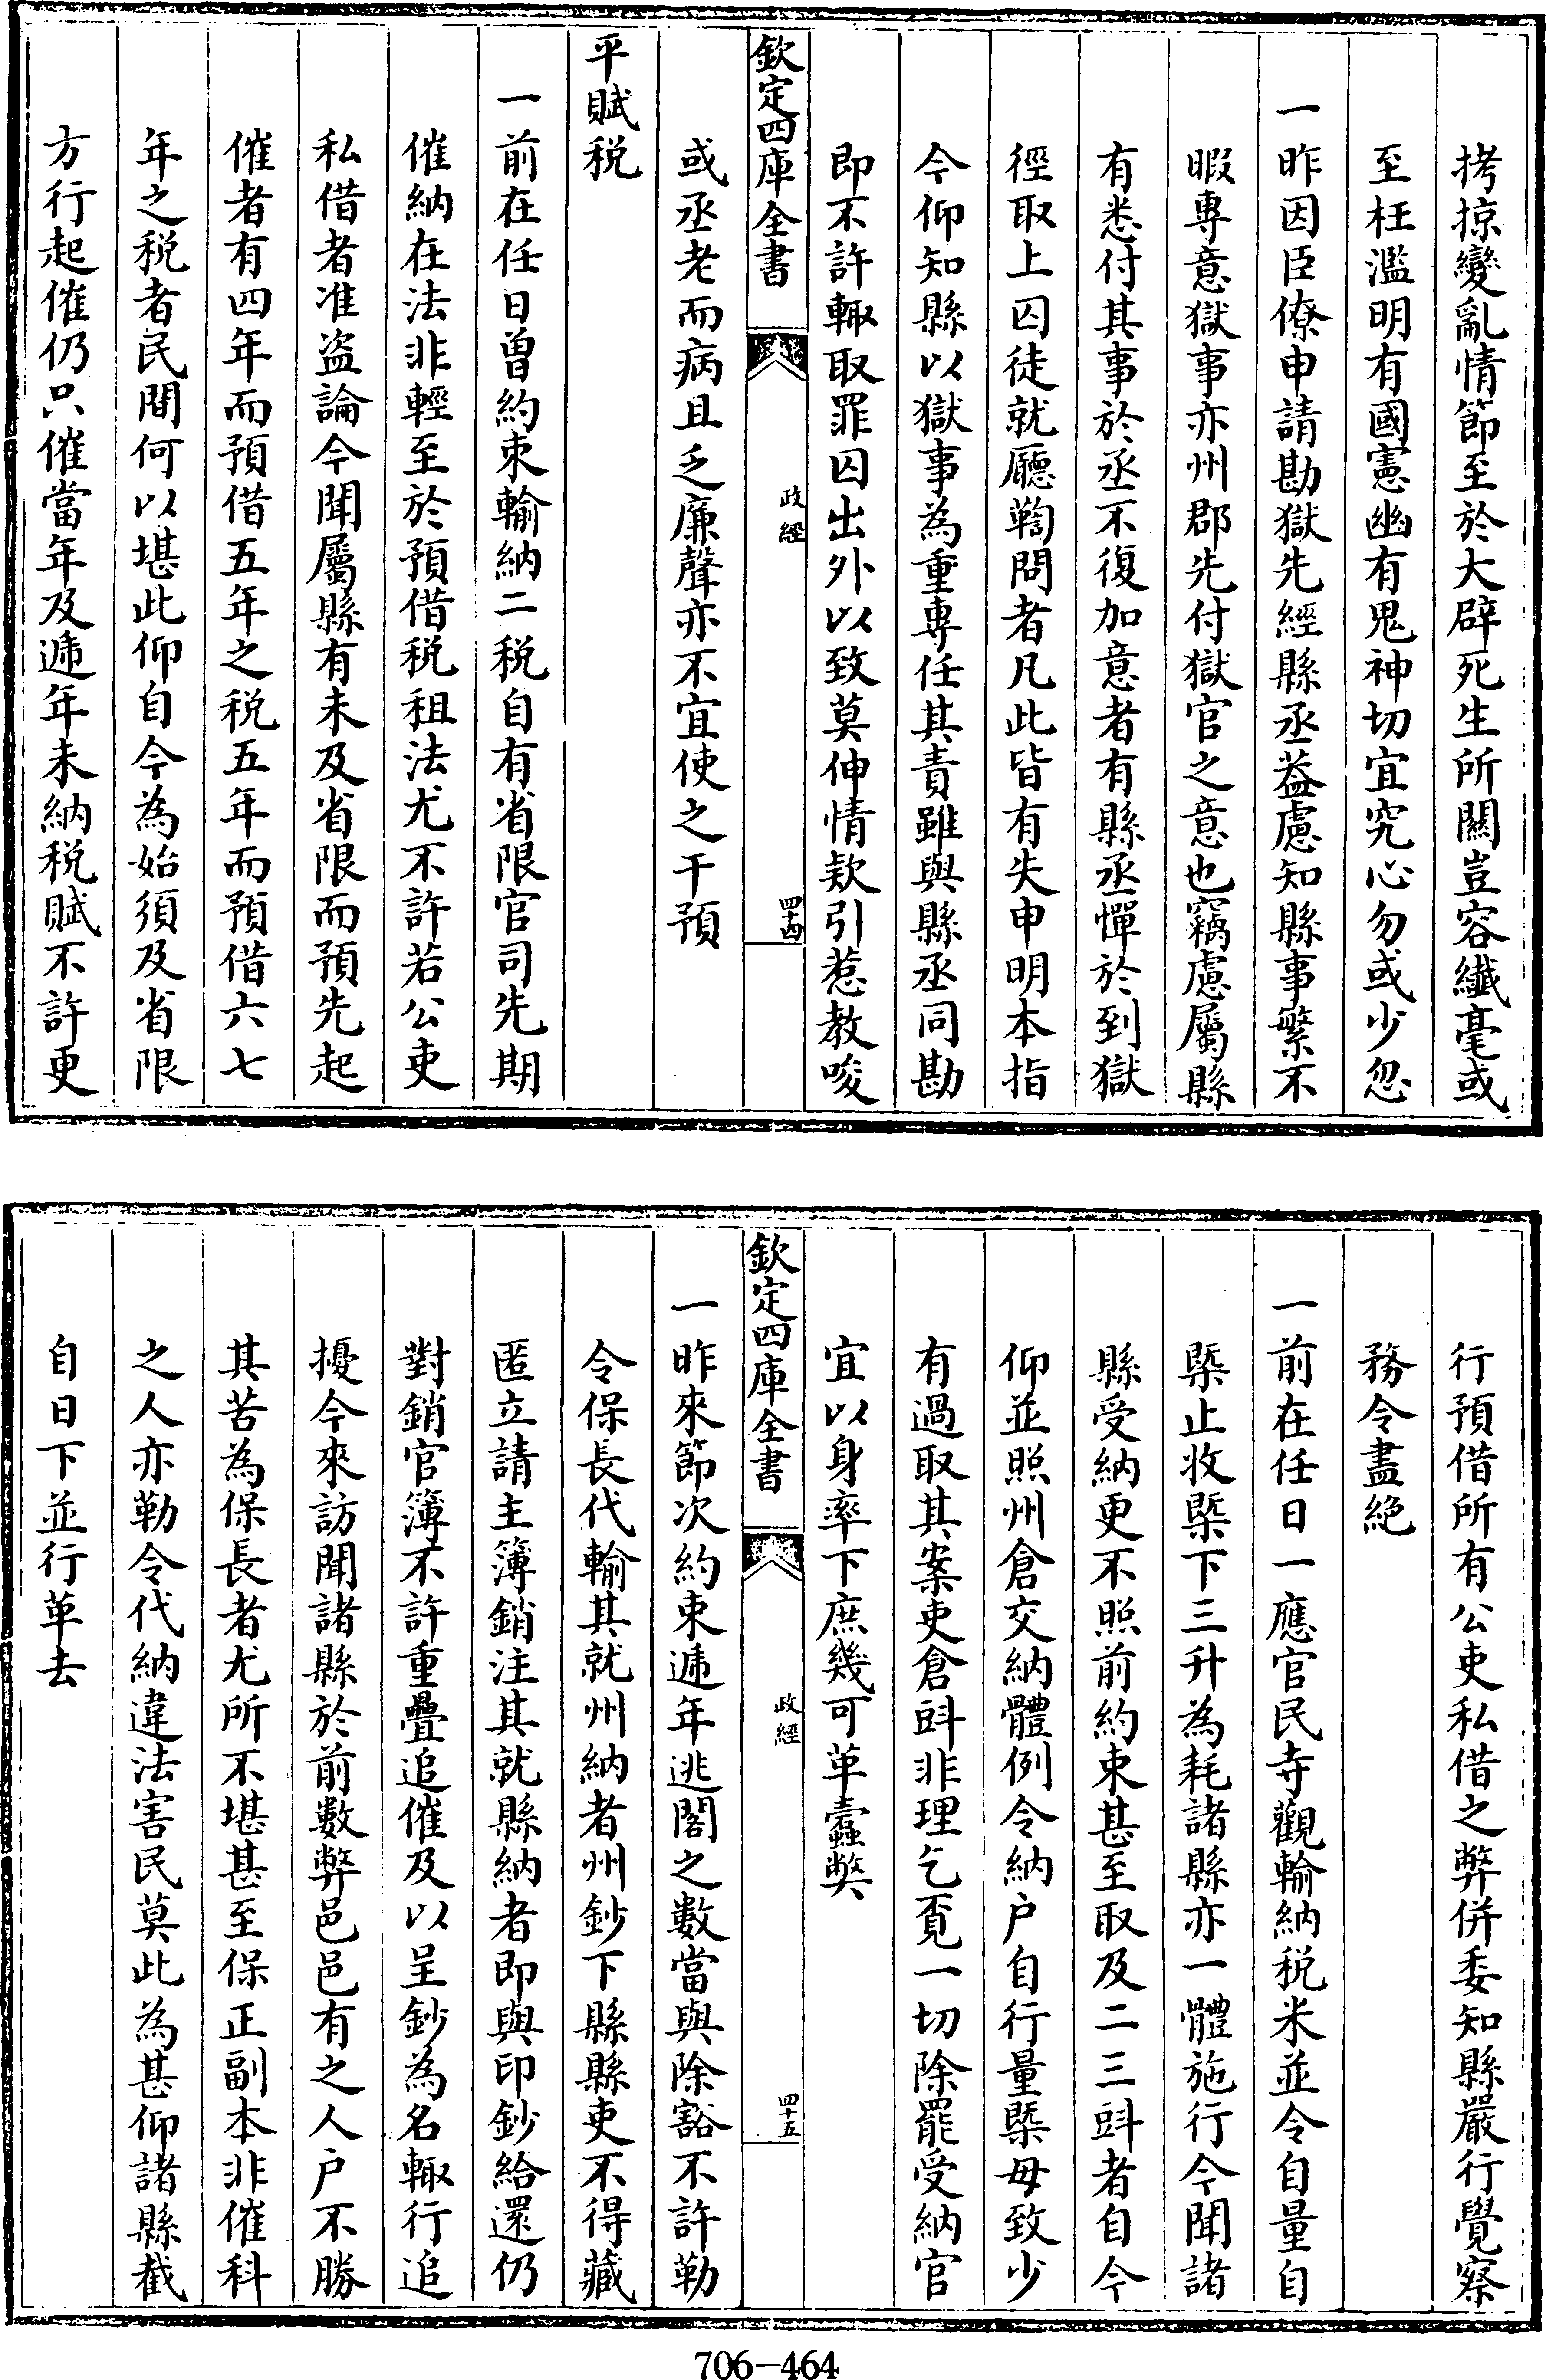 拷掠變亂情節至於大辟死生所關豈容纖毫或
至枉濫明有國憲幽有鬼神切宜究心勿或少忽
一昨因臣僚申請勘獄先經縣丞葢慮知縣事繁不
暇專意獄事亦州郡先付獄官之意也竊慮屬縣
有悉付其事於丞不復加意者有縣丞憚於到獄
徑取上囚徒就廳鞫問者凡此皆有失申明本指
今仰知縣以獄事為重專任其責雖與縣丞同勘
即不許輒取罪囚出外以致莫伸情欵引惹教唆
欽定四庫全書
政經
四十四
或丞老而病且乏廉聲亦不宜使之干預
平賦税
一前在任日曽約束輸納二税自有省限官司先期
催納在法非輕至於預借税租法尤不許若公吏
私借者准盗論今聞屬縣有未及省限而預先起
催者有四年而預借五年之税五年而預借六七
年之税者民間何以堪此仰自今為始須及省限
方行起催仍只催當年及遞年未納税賦不許更
行預借所有公吏私借之弊併委知縣嚴行覺察
務令盡絶
一前在任日一應官民寺觀輸納税米並令自量自
槩止收槩下三升為耗諸縣亦一體施行今聞諸
縣受納更不照前約束甚至取及二三㪷者自今
仰並照州倉交納體例令納户自行量槩毋致少
有過取其案吏倉㪷非理乞覔一切除罷受納官
宜以身率下庶幾可革蠧弊
欽定四庫全書
政經
四十五
一昨來節次約束逓年逃閣之數當與除豁不許勒
令保長代輸其就州納者州鈔下縣縣吏不得藏
匿立請主簿銷注其就縣納者即與印鈔給還仍
對銷官簿不許重疊追催及以呈鈔為名輒行追
擾今來訪聞諸縣於前數弊邑邑有之人户不勝
其苦為保長者尤所不堪甚至保正副本非催科
之人亦勒令代納違法害民莫此為甚仰諸縣截
自日下並行革去
706-464